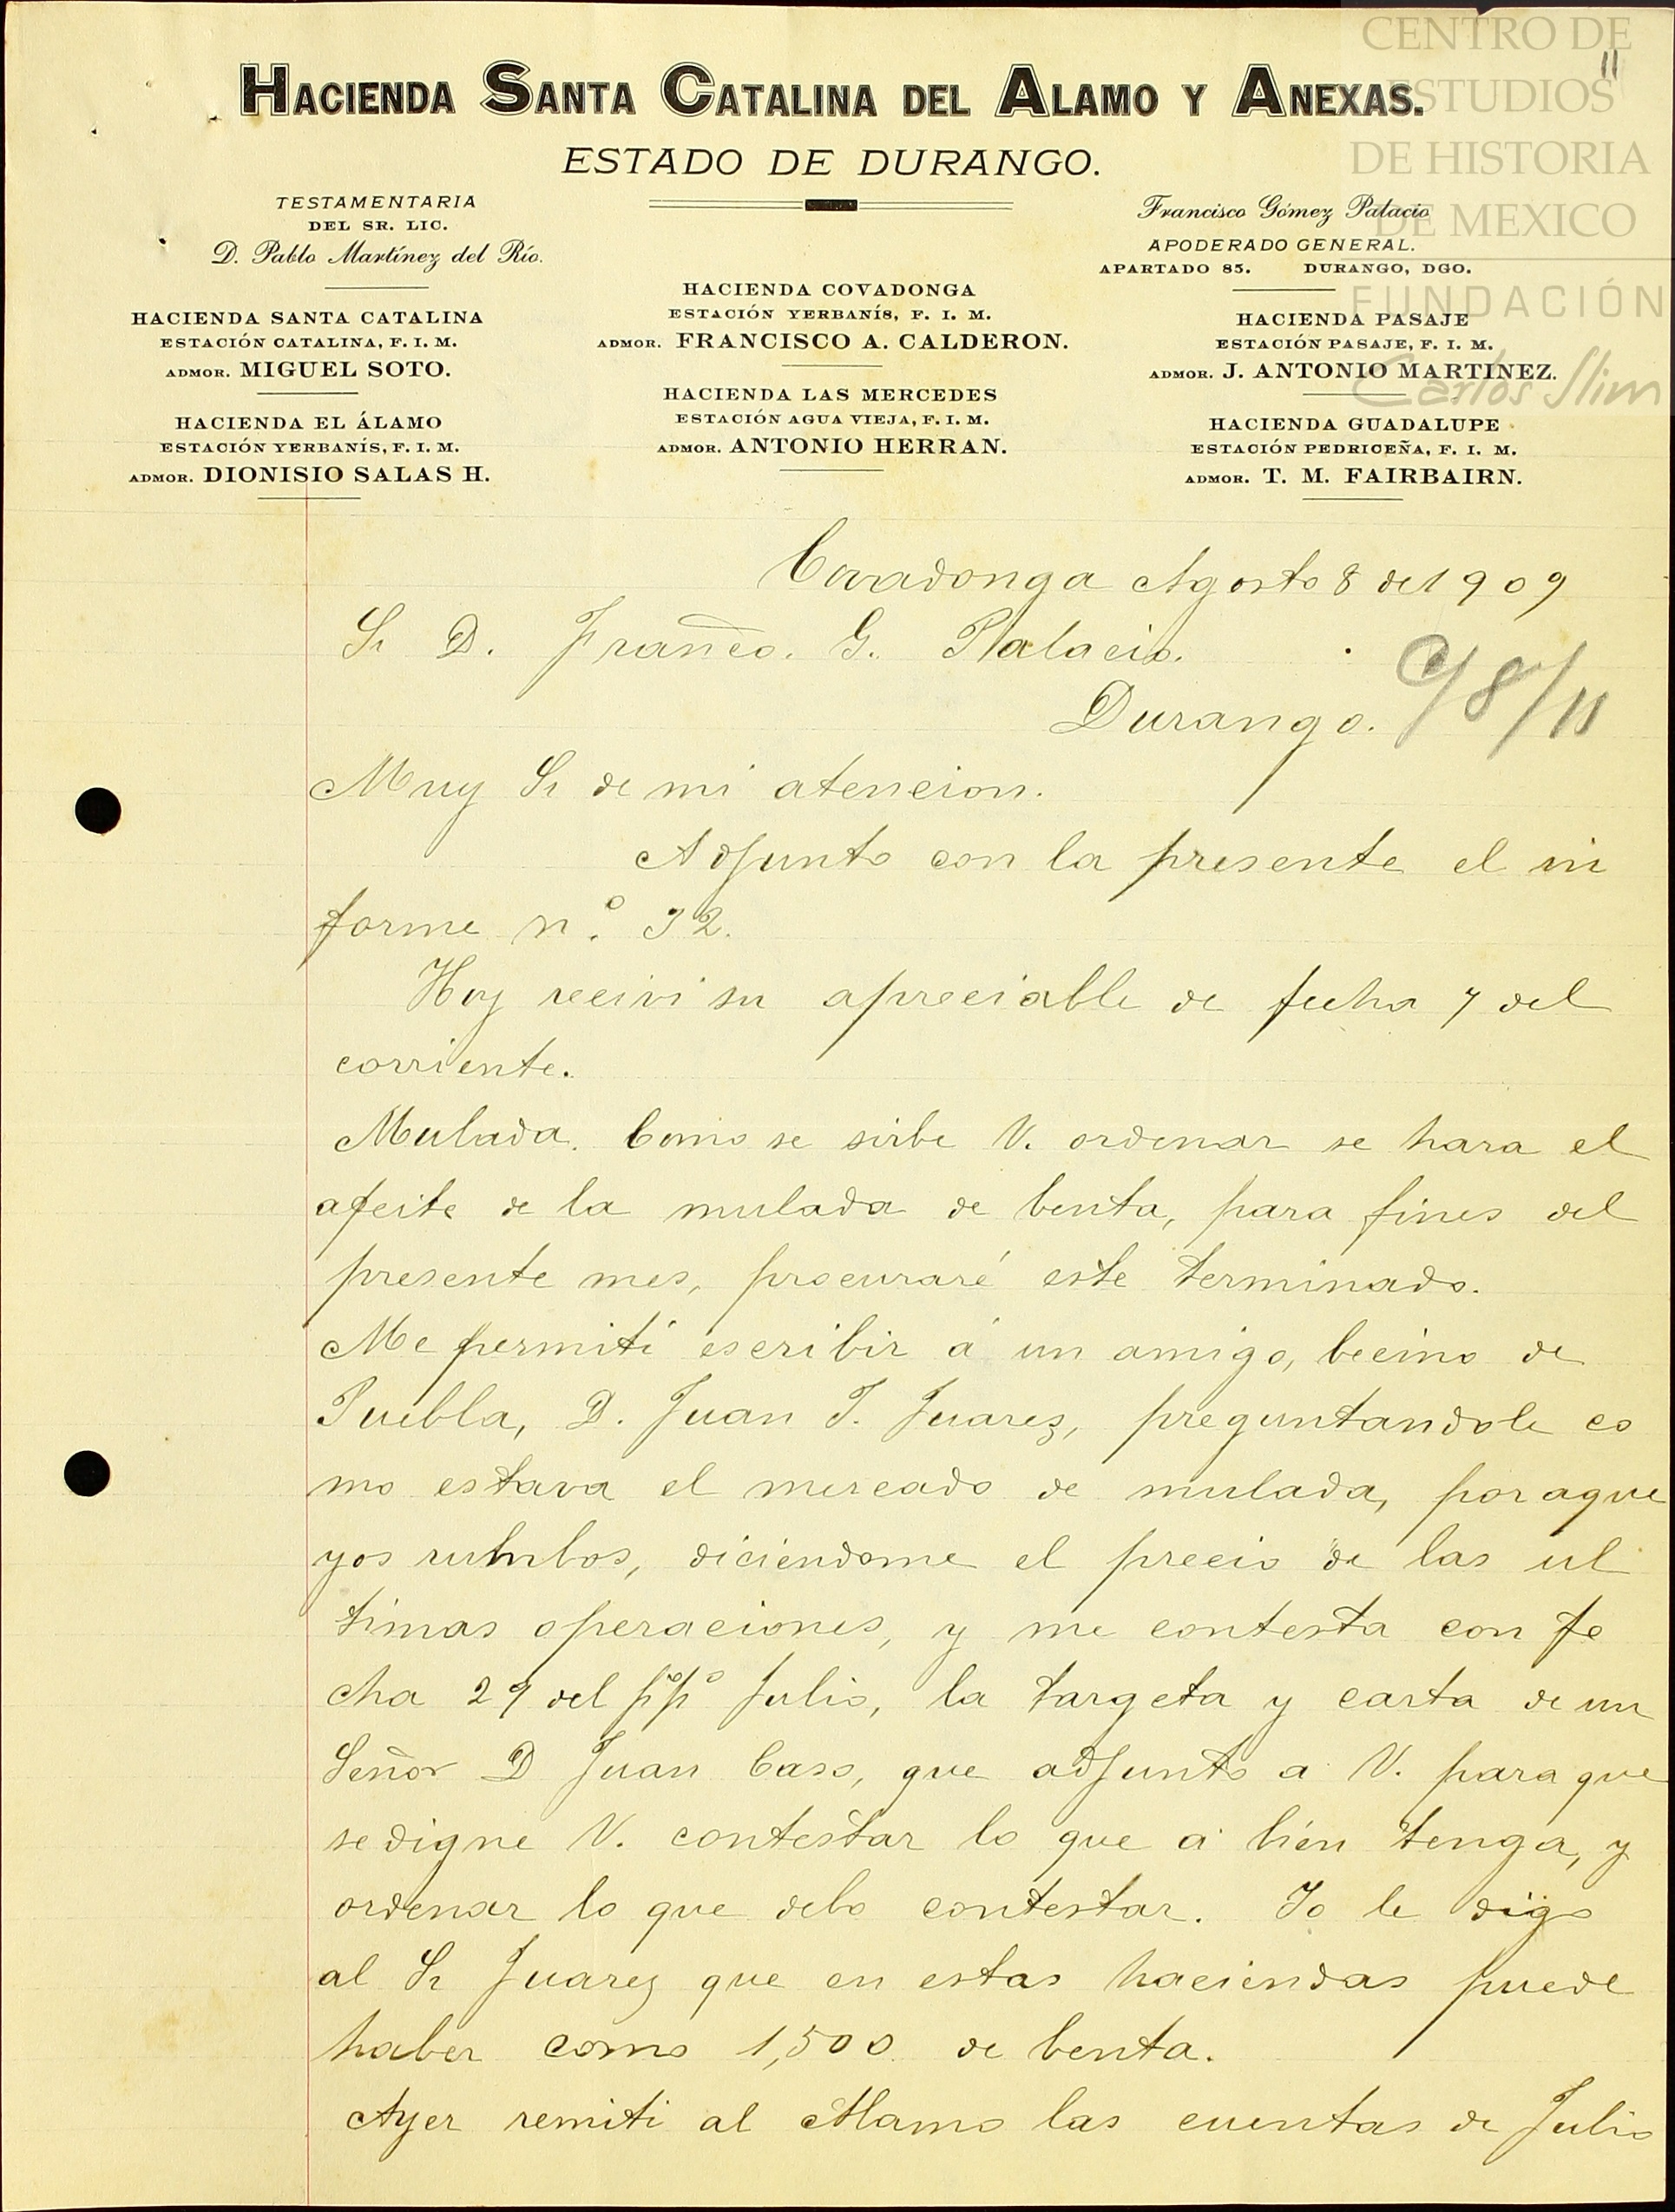 CENTRO DE
ESTUDIOS
DE HISTORIA
DE MEXICO
FUNDACIÓN
Carlos Slim
11
HACIENDA SANTA CATALINA DEL ALAMO Y ANEXAS.
ESTADO DE DURANGO.
TESTAMENTARIA
DEL SR. LIC.
D. Pablo Martínez del Río.
HACIENDA SANTA CATALINA
ESTACIÓN CATALINA, F. I. M.
ADMOR. MIGUEL SOTO.
HACIENDA EL ÁLAMO
ESTACIÓN YERBANÍS, F. I. M.
ADMOR. DIONISIO SALAS H.
HACIENDA COVADONGA
ESTACIÓN YERBANÍS, F. I. M.
ADMOR. FRANCISCO A. CALDERON.
HACIENDA LAS MERCEDES
ESTACIÓN AGUA VIEJA, F. I. M.
ADMOR. ANTONIO HERRAN.
Francisco Gómez Palacio
APODERADO GENERAL.
APARTADO 85. DURANGO, DGO.
HACIENDA PASAJE
ESTACIÓN PASAJE, F. I. M.
ADMOR. J. ANTONIO MARTINEZ.
HACIENDA GUADALUPE
ESTACIÓN PEDRICEÑA, F. I. M.
ADMOR. T. M. FAIRBAIRN.
Covadonga Agosto 8 de 1909
Sr D. Franco. G. Palacio.
Durango.
C/8/11
Muy Sr de mi atencion.
Adjunto con la presente el in
forme n.º 32.
Hoy recivi su apreciable de fecha 7 del
corriente.
Mulada. Como se sirbe V. ordenar se hara el
afeite de la mulada de benta, para fines del
presente mes, procuraré este terminado.
Me permití escribir á un amigo, becino de
Puebla, D. Juan T. Juarez, preguntandole co
mo estava el mercado de mulada, por aque
yos rumbos, diciéndome el precio de las ul
timas operaciones, y me contesta con fe
cha 29 del ppº Julio, la targeta y carta de un
Señor D Juan Caso, que adjunto a V. para que
se digne V. contestar lo que a bién tenga, y
ordenar lo que debo contestar. Yo le digo
al Sr Juarez que en estas haciendas puede
haber como 1,500 de benta.
Ayer remiti al Alamo las cuentas de Julio